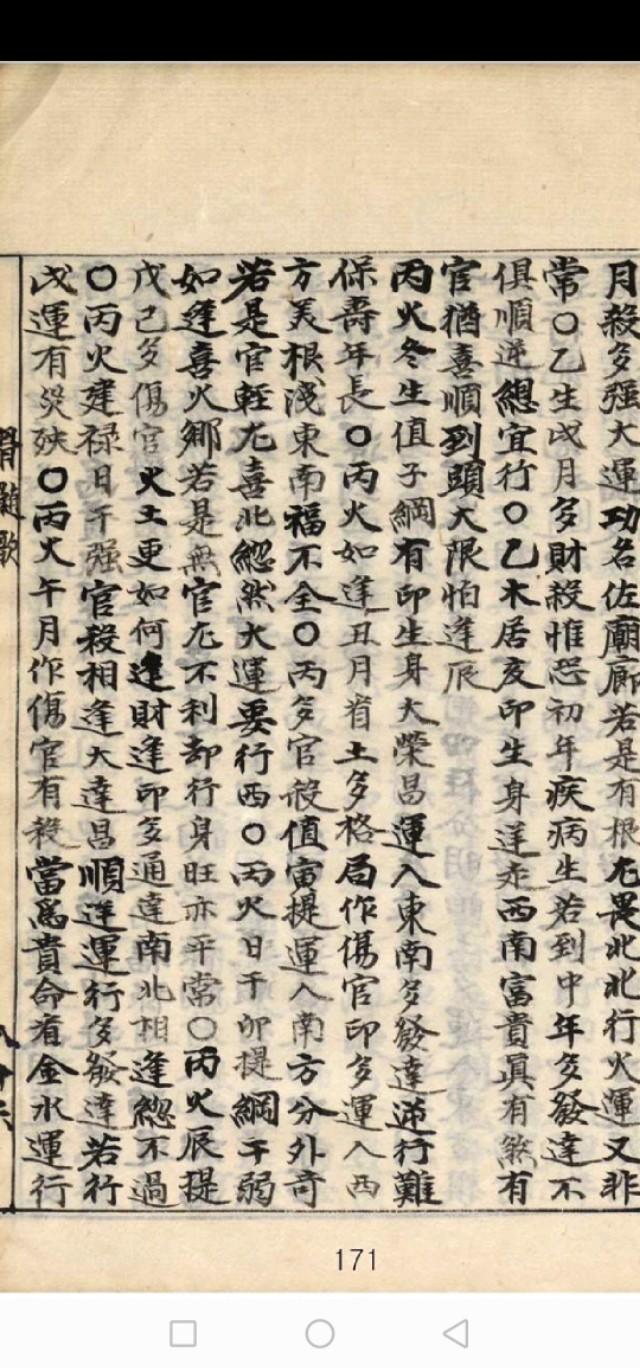 月殺多强大運功名佐廟廊若是有根尢畏北北行火運又非
常〇乙生戌月多財殺惟恐初年疾病生若到中年多發達不
俱順逆總宜行〇乙木居亥印生身運走西南富貴眞有煞有
官猶喜順到頭大限怕逢辰
丙火冬生值子綱有印生身大榮昌運入東南多發達逆行難
保壽年長〇丙火如逢丑月省土多格局作傷官印多運入西
方美根浅東南福不全〇丙多官殺值寅提運入南方分外奇
若是官軽尢喜北縂然大運要行西〇丙火日干卯提綱干弱
如逢喜火鄉若是無官尢不利却行身旺亦平常〇丙火辰提
戊己多傷官火土更如何逢財逢印多通達南北相逢總不過
〇丙火建禄日干强官殺相逢大達昌順逆運行多發達若行
戌運有災殃〇丙火午月作傷官有殺當爲貴命看金水運行
髓歌
171